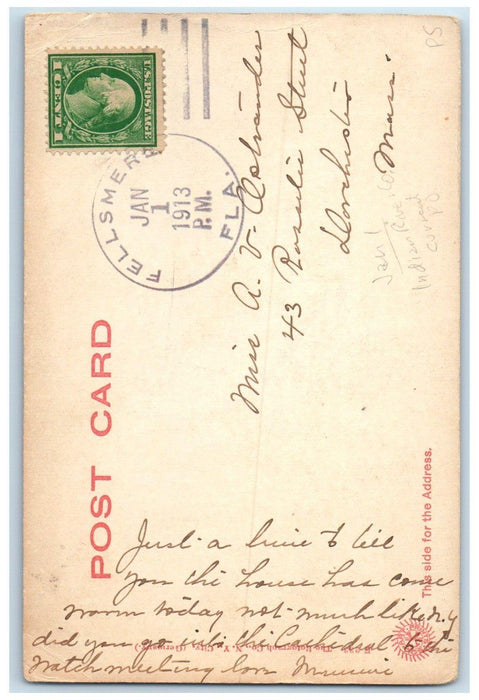 1 CENT 1
U.S. POSTAGE
FELLSMERE FLA.
JAN
1
1913
P.M.
Miss A. V. Ostrander
43 Rosselin Street
Dorchester
Mass.
PS
Jan 1
Indian River Co
current
P.O.
POST CARD
This side for the Address.
Just a line to tell
you the house has come
warm today not much like N.Y
did you go into the Cathedral to the
watch meeting love Minnie